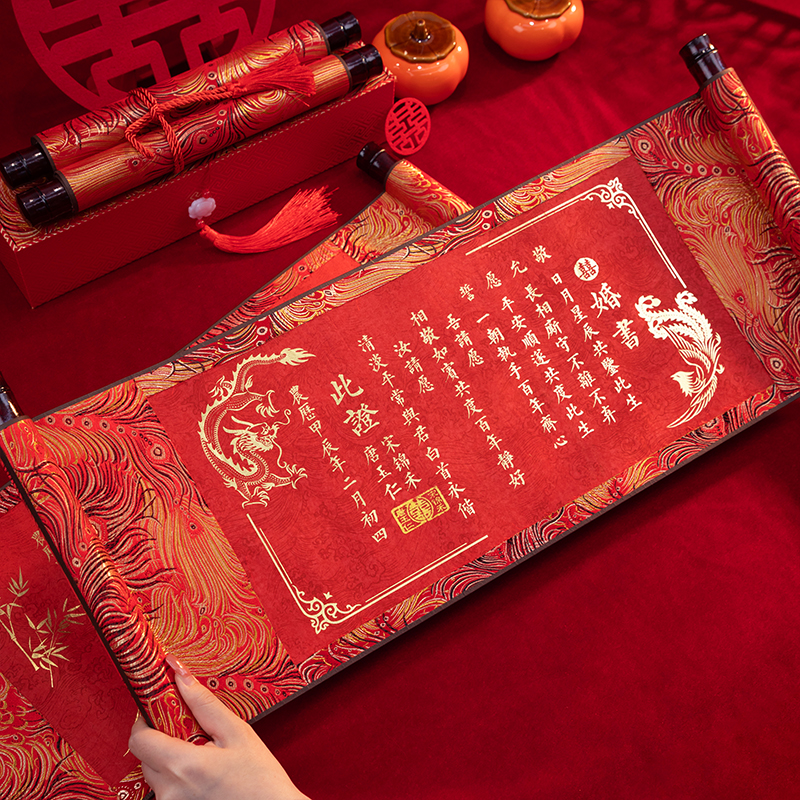 囍
婚書
敬 日月星辰共鑒此生
長相廝守不離不棄
愿 平安順遂共度此生
誓 一朝執手百年齊心
吾請愿
相敬如賓共度百年靜好
汝請愿
清淡平常與君白首永偕
宋錦禾
唐玉仁
此證
農歷甲辰年二月初四